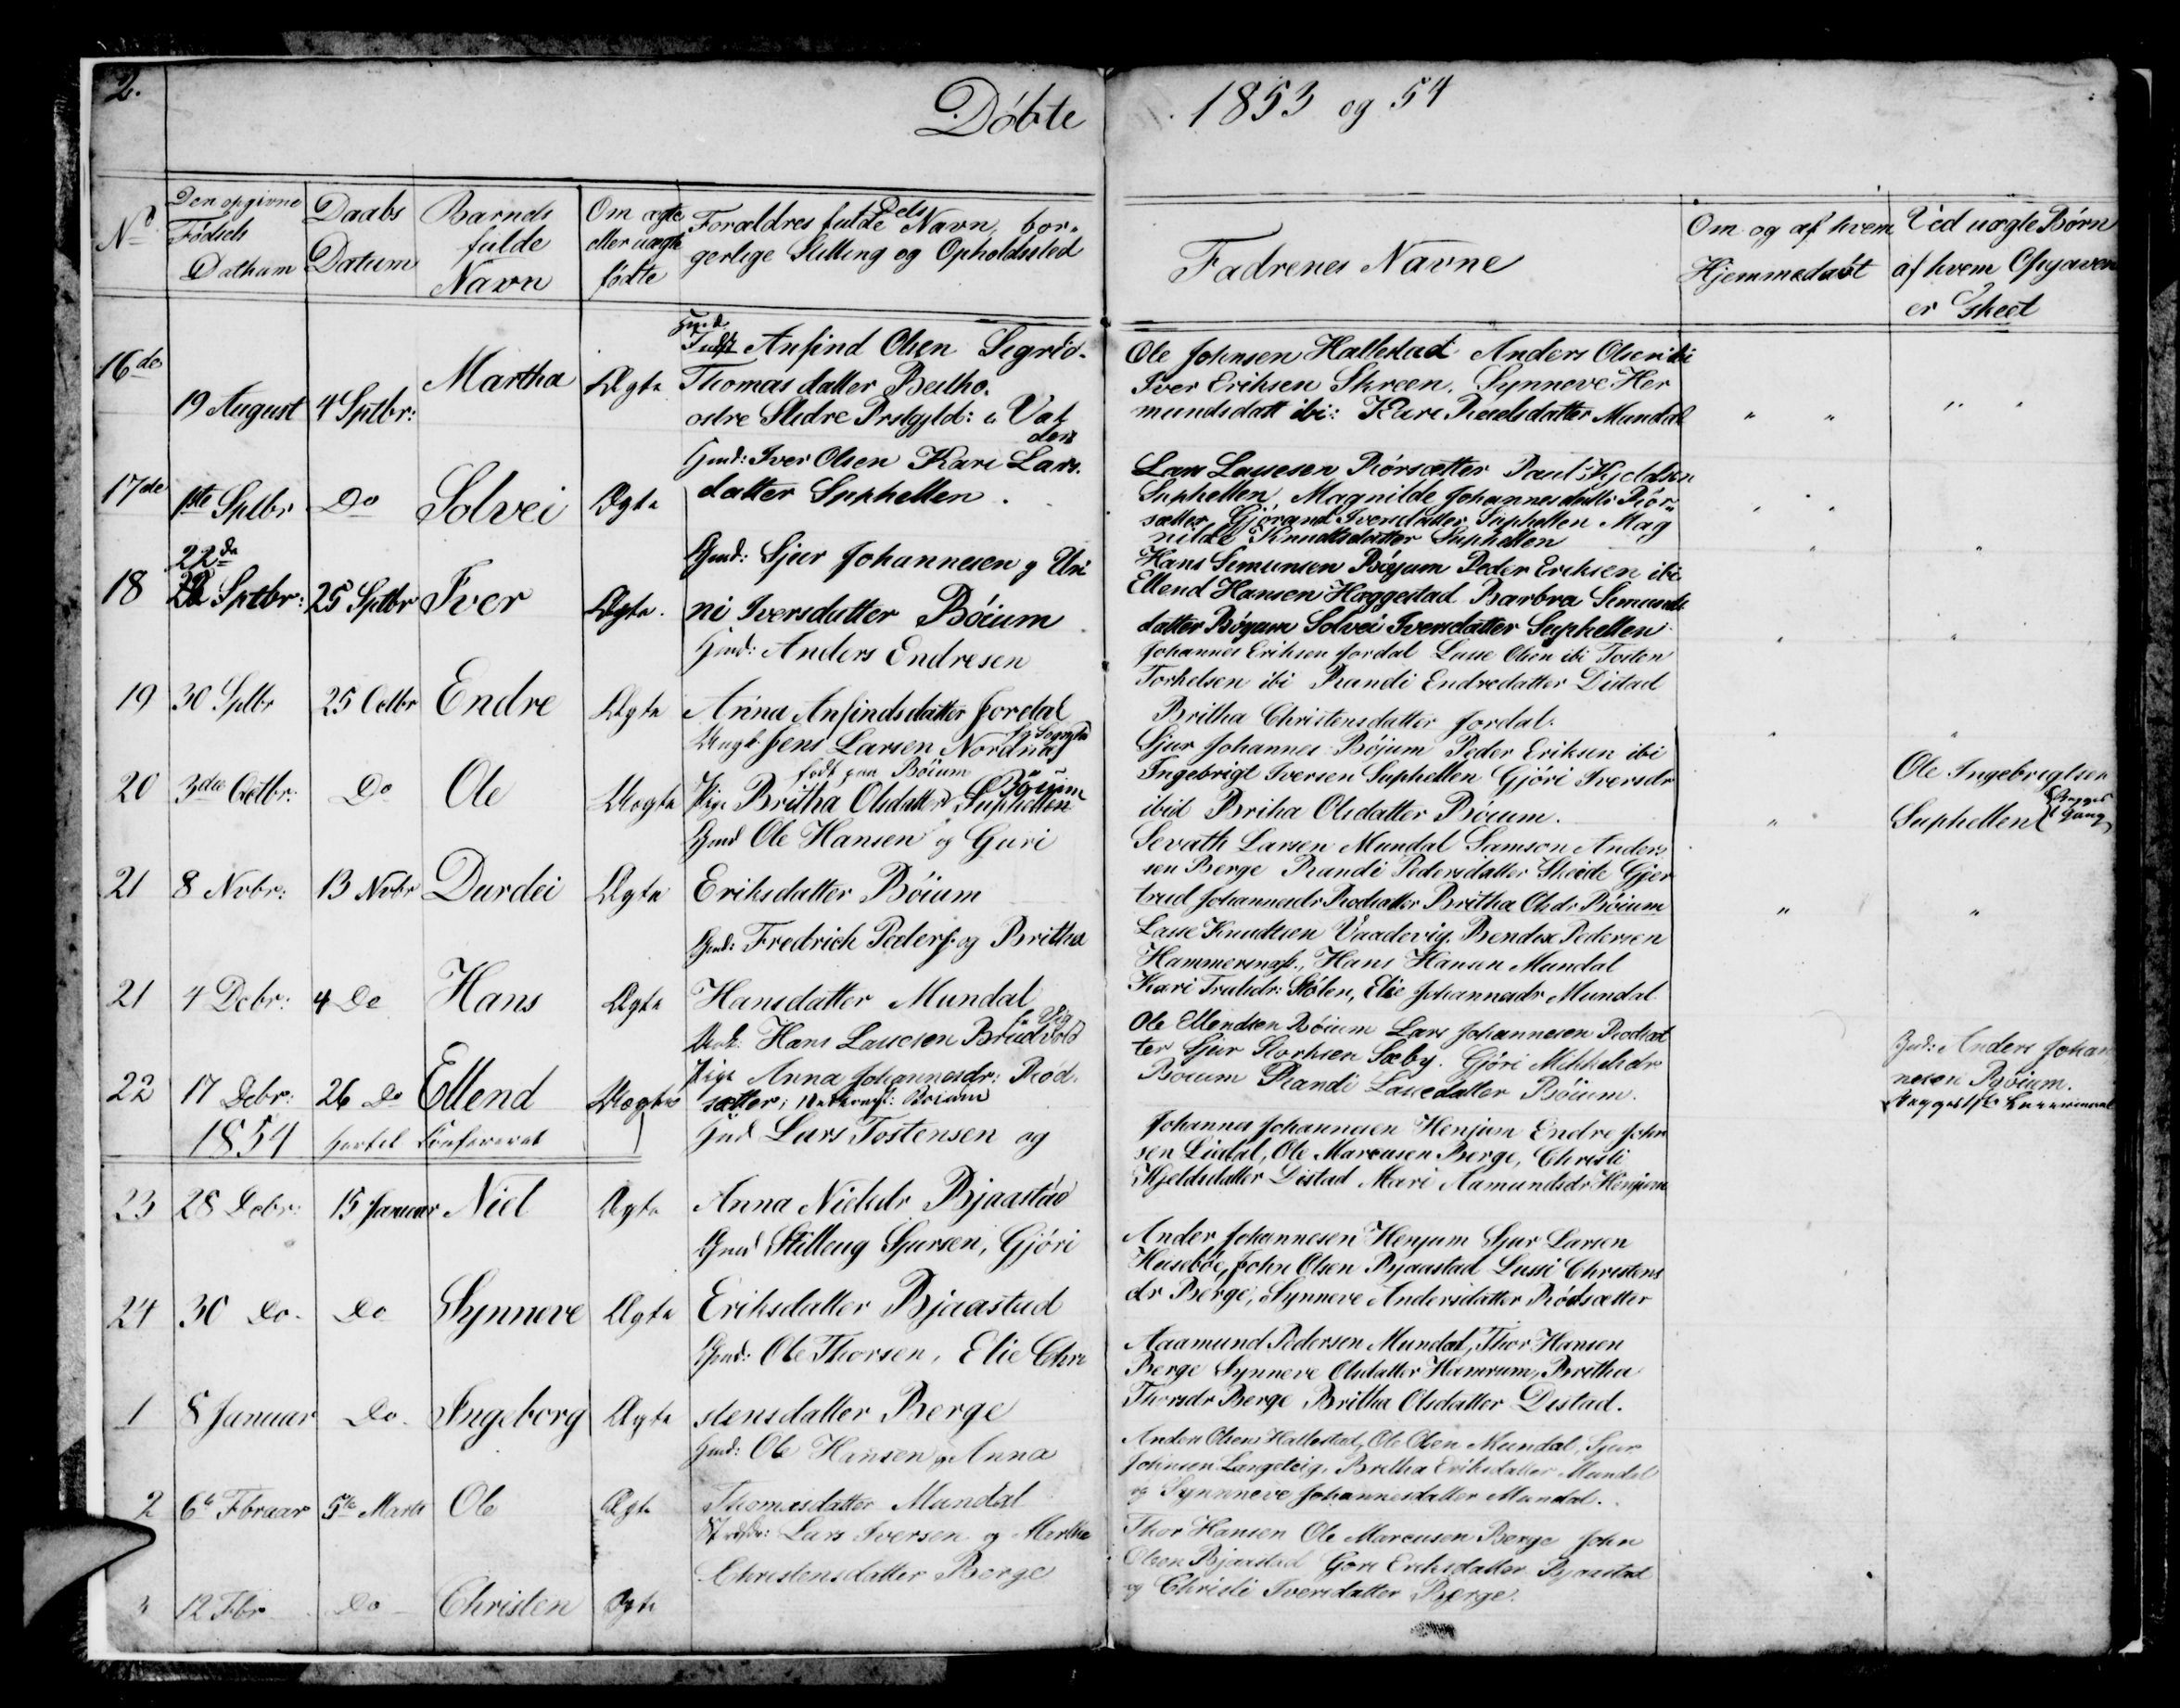 2.
Döbte
1853 og 54
No
Den opgivne
Födsels
Dathum
Daabs
Datum
Barnets
fulde
Navn
Om ægte
eller uægte
födte
Dets
Foræeldres fulde Navn, bor-
gerlige Stilling og Opholdssted
Fadrenes Navne
Om og af hvem
Hjemmedöbt
Ved uægte Börn
af hvem Opgaven
er skeet
16de
19 August
4 Sptbr:
Martha
Ægte
Anfind Olsen Segrid
Thomasdatter Beitho.
ostre Slidre Prstgjld: i Val
ders
Ole Johnsen Hallestad Anders Olsen ibi
Iver Eriksen Skreen, Synneve Her
mundsdatt ibi: Kari Poulsdatter Mundal
17de
1ste Sptbr
Do
Solvei
Ægte
Gmd: Iver Olsen Kari Lars
datter Suphellen.
Lars Lassesen Rörsætter Paul Kjeldsen
Suphellen Magnilde Johannesdatte Rör-
sætter Gjörand Iversdatter Suphellen Mag
nilde Knudtsdatter Suphellen
18
22de
Sptbr:
25 Sptbr
Iver
Ægte.
Gmd: Sjur Johannesen g Uni
ni Iversdatter Böium
Hans Simunsen Böyum Peder Eriksen ibi
Ellend Hansen Haggestad Barbra Simunds
datter Böyum Solvei Iversdatter Suphellen
19
30 Sptbr
25 Octbr
Endre
Ægte
Gmd: Anders Endresen
Anna Anfindsdatter Jordal
Johannes Eriksen Jordal Lasse Olsen ibi Tosten
Torkelsen ibi Randi Endredatter Distad
Britha Christensdatter Jordal.
20
3die Octbr:
Do
Ole
Uægte
Ungk. Jens Larsen Nordnæs
födt paa Böium
Pige Britha Olsdatter Suphellen
Böium
Sjur Johannes Böjum Peder Eriksen ibi
Ingebrigt Iversen Suphellen Gjöri Iversdr
ibid Britha Olsdatter Böium.
Ole Ingebregtsen
Suphellen
21
8 Nvbr:
13 Nvbr
Durdei
Ægte
Gmd Ole Hansen og Guri
Eriksdatter Böium
Sevath Larsen Mundal Samson Anders
sen Berge Randi Pedersdatter Skeide Gjer
trud Johannesdr Rödsatter Britha Olsdr Böium
21
4 Debr:
4 Do
Hans
Ægte
Gmd: Fredrich Peders: og Britha
Hansdatter Mundal
Lasse Knudtsen Vaadevig. Bendix Pedersen
Hammersnæs., Hans Hansen Mundal
Kari Trulsdr: Stölen, Elie Johannesdr Mundal
22
17 Debr:
26 Do
Ellend
Uægte
Hans Lassesen Brudvold
Pige Anna Johannesdr: Röd-
sætter, Böium
Ole Ellendsen Böium Lars Johannesen Rödsat
ter Sjur Storksen Sæby. Gjöri Mikkelsdr
Böium Randi Lassedatter Böium.
Gmd: Anders Johan
nesen Böium.
1854
23
28 Debr:
15 Januar
Niel
Ægte
Gmd Lars Tostensen og
Anna Nielsdr Bjaastad
Johannes Johannesen Henjum Endre John
sen Lidal, Ole Marcusen Berge, Christi
Kjeldsdatter Distad Mari Aamundsdr Henjum
24
30 Do.
Do
Synneve
Ægte
Gmd Stilleug Sjursen, Gjöri
Eriksdatter Bjaastad
Ander Johannesen Henjum Sjur Larsen
Husebøe, John Olsen Bjaastad Lussi Christens
dr Berge, Synneve Andersdatter Rödsætter
1
8 Januar
Do.
Ingeborg
Ægte
Gmd: Ole Thorsen, Elie Chri
stensdatter Berge
Aaamund Pedersen Mundal, Thor Hansen
Berge Synneve Olsdatter Hamrum, Britha
Thorsdr Berge Britha Olsdatter Distad.
2
6te Fbruar
5te Marts
Ole
Ægte
Gmd: Ole Hansen og Anna
Thomasdatter Mundal
Anders Olsen Hallestad, Ole Olsen Mundal, Sjur
Johnsen Langeteig, Britha Eriksdatter Mundal
og Synneve Johannesdatter Mundal.
3
12 Fbr
Do
Christen
Ægte
Lars Iversen og Martha
Christensdatter Berge
Thor Hansen Ole Marcusen Berge John
Olsen Bjaastad Gjori Eriksdatter Bjaastad
og Christi Iversdatter Berge.